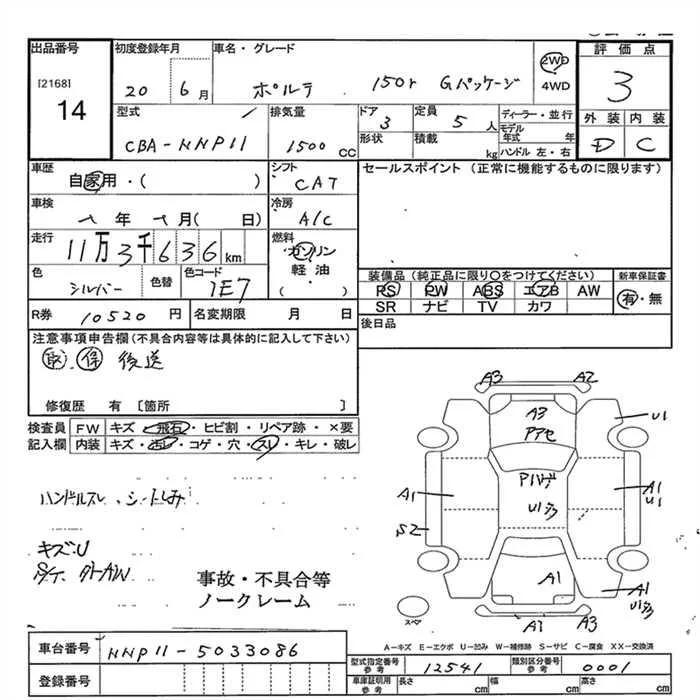 出品番号 初度登録年月 車名・グレード 評価点
[2168] 14 20 6月 ポルテ 150r Gパッケージ 2WD 4WD 3
型式 排気量 ドア 定員 ディーラー・並行 外装 内装
CBA-NNP11 1500 CC 3 5人 モデル年式 年 D C
形状 積載 kg ハンドル 左・右
車歴 シフト セールスポイント (正常に機能するものに限ります)
自家用・( ) CAT
車検 冷房
年 月( 日) A/C
走行 燃料
11万3千636km ガソリン
軽油
( )
色 色替 色コード 装備品 (純正品に限り○をつけてください) 新車保証書
シルバー 1E7 PS PW ABS エアB AW 有・無
SR ナビ TV カワ
R券 10520円 名変期限 月 日 後日品
注意事項申告欄(不具合内容等は具体的に記入して下さい)
取 保 後送
修復歴 有 [箇所 ]
検査員 FW キズ・飛石・ヒビ割・リペア跡・×要
記入欄 内装 キズ・汚レ・コゲ・穴・スレ・キレ・破レ
ハンドルスレ、シートしみ
キズ:U
事故・不具合等
ノークレーム
A3 A2
A3
U1
A1
A1
U1
S2
A1
A1
A3
スペア
A-キズ E-エクボ U-凹み W-補修跡 S-サビ C-腐食 XX-交換済
車台番号 NNP11-5033086
型式指定番号 12541 類別区分番号 0001
登録番号
車庫証明用参考 長さ cm 幅 cm 高さ cm